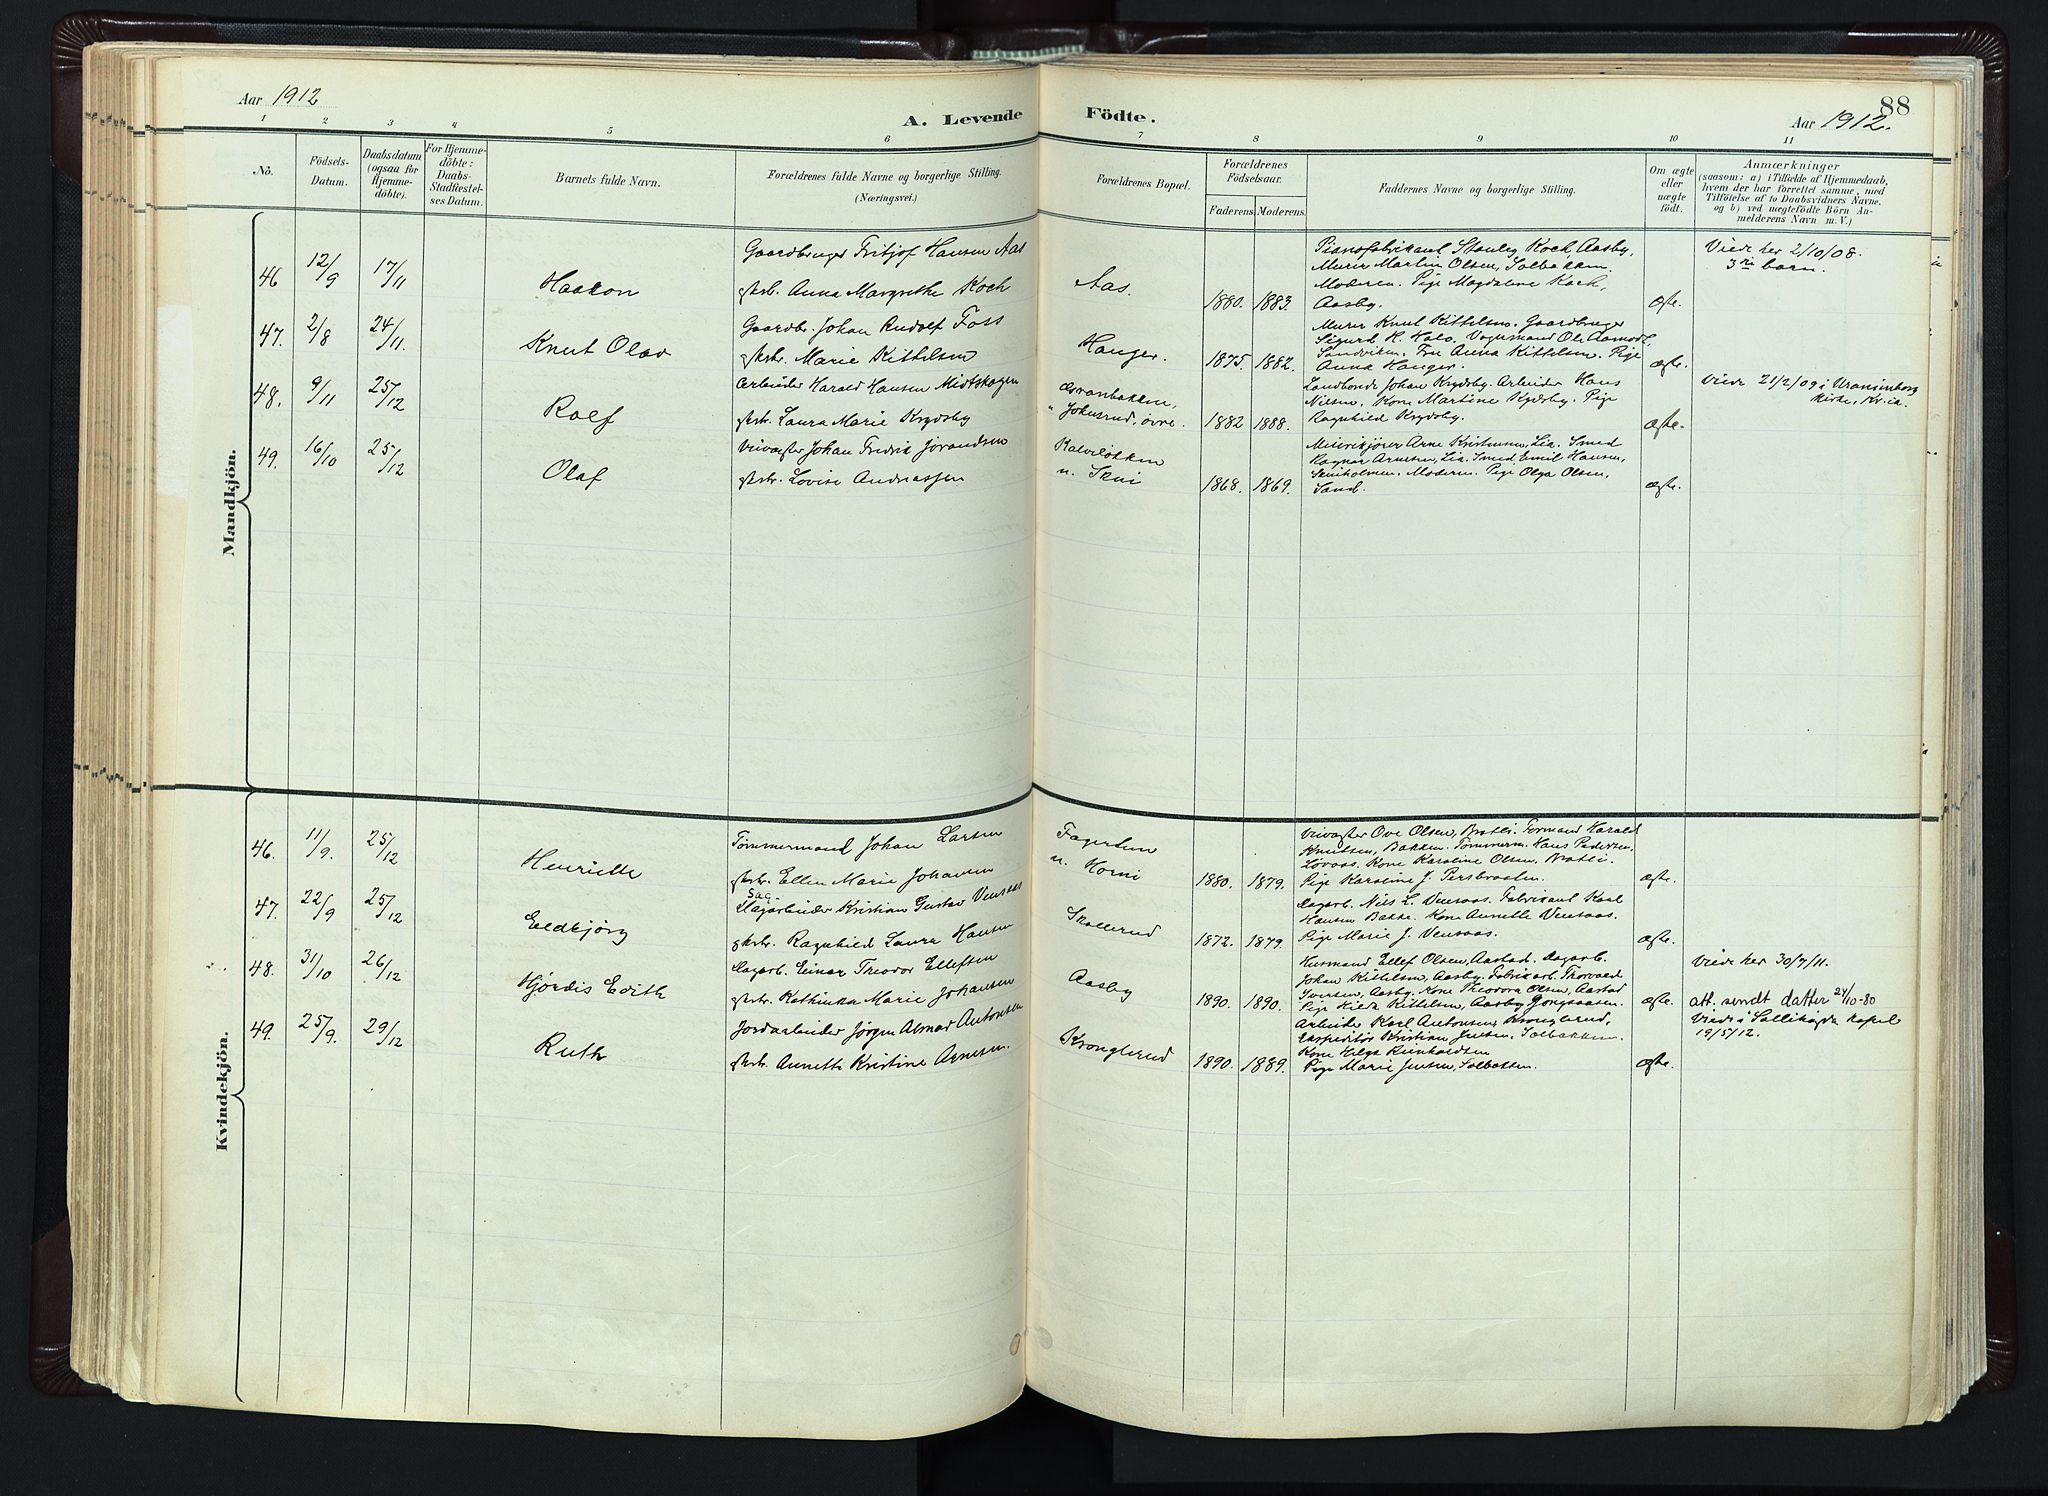 Aar 1912
A. Levende
Födte.
88
Aar 1912.
1 2 3 4 5 6 7 8 9 10 11
No.
Födsels-
Datum.
Daabsdatum
(ogsaa for
Hjemme-
döbte).
For Hjemme-
döbte:
Daabs-
Stadfæstel-
ses Datum.
Barnets fulde Navn.
Forældrenes fulde Navne og borgerlige Stilling.
(Næringsvei.)
Forældrenes Bopæl.
Forældrenes
Födselsaar.
Faderens. Moderens.
Faddernes Navne og borgerlige Stilling.
Om ægte
eller
uægte
födt.
Anmærkninger
(saasom: a) i Tilfælde af Hjemmedaab,
hvem der har forrettet samme, med
Tilföielse af to Daabsvidners Navne.
og b) ved uægtefödte Börn An-
melderens Navn m. V.)
Mandkjön.
46 12/9 17/11 Haakon
Gaardbruger Fritjof Hansen Aas
gkstr. Anna Margrethe Koch
Aas.
1880. 1883.
Pianofabrikant Stanley Koch, Aasby,
Murer Martin Olsen, Solbakken.
Moderen. Pige Magdalene Koch,
Aasby.
ægte.
Viede her 2/10/08.
3die barn.
47. 2/8 24/11. Knut Olav
Gaardbr. Johan Rudolf Foss
gkstr. Marie Kittelsen
Hauger.
1875. 1882.
Murer Knut Kittelsen. Gaardbruger
Sigurd H. Halo, Vognmand Ole Aamodt,
Sandviken. Fru Anna Kittelsen. Pige
Anna Hauger.
ægte.
48. 9/11 25/12 Rolf
Arbeider Harald Hansen Midtskogen
gkstr. Laura Marie Krydsby
Johnsrud, övre.
1882 1888.
Landbonde Johan Krydsby. Arbeider Hans
Nilsen, Kone Martine Krydsby. Pige
Ragnhild Krydsby.
ægte.
Viede 21/2/09 i Uranienborg
kirke, Kr.ia.
49. 16/10 25/12 Olaf
Veivogter Johan Fredrik Jörandsen
gkstr. Lovise Andreassen
n. Skui
1868. 1869.
Meierikjörer Arne Kristensen, Lia. Smed
Ragnar Arnesen, Lia. Smed Emil Hansen,
Skuiholmen. Moderen. Pige Olga Olsen,
Sand.
ægte.
Kvindekjön.
46. 11/9. 25/12 Henriette
Tømmermand Johan Larsen
gkstr. Ellen Marie Johansen
Fagerlien
n. Horni
1880. 1879.
Veivogter Ove Olsen, Bratli. Formand Harald
Knutsen, Bakken. Tömmerm. Hans Pedersen,
Løvaas. Kone Karoline Olsen, Bratli.
Pige Karoline J. Persbraaten.
ægte.
47. 22/9 25/12 Eldbjörg
Sag
Dagarbeider Kristian Gustav Vensaas
gkstr. Ragnhild Laura Hansen
Skollerud
1872. 1879.
Dagarb. Nils L. Vensaas. Fabrikant Karl
Hansen Bakke. Kone Annette Vensaas.
Pige Marie J. Vensaas.
ægte.
48. 31/10 26/12 Hjördis Edith
Dagarb. Einar Theodor Ellefsen
gkstr. Kathinka Marie Johansen
Aasby
1890. 1890.
Husmand Ellef Olsen, Aastad. Dagarb.
Johan Kittelsen, Aasby. Fabrikarb. Thorvald
Iversen, Aasby. Kone Theodora Olsen, Aastad
Pige Hilda Kittelsen, Aasby
ægte.
Viede her 30/7/11.
att. sendt datter 24/10-80
49. 25/9. 29/12 Ruth
Jordarbeider Jörgen Almar Antonsen
gkstr. Annette Kristine Arnesen.
Kronglerud
1890. 1889.
Arbeider Karl Antonsen, Kronglerud,
Ekspeditör Kristian Jensen, Solbakken.
Kone Helga Reinhardtsen
Pige Marie Jensen, Solbakken.
ægte.
Viede i Sollihøgda kapel
19/5/12.